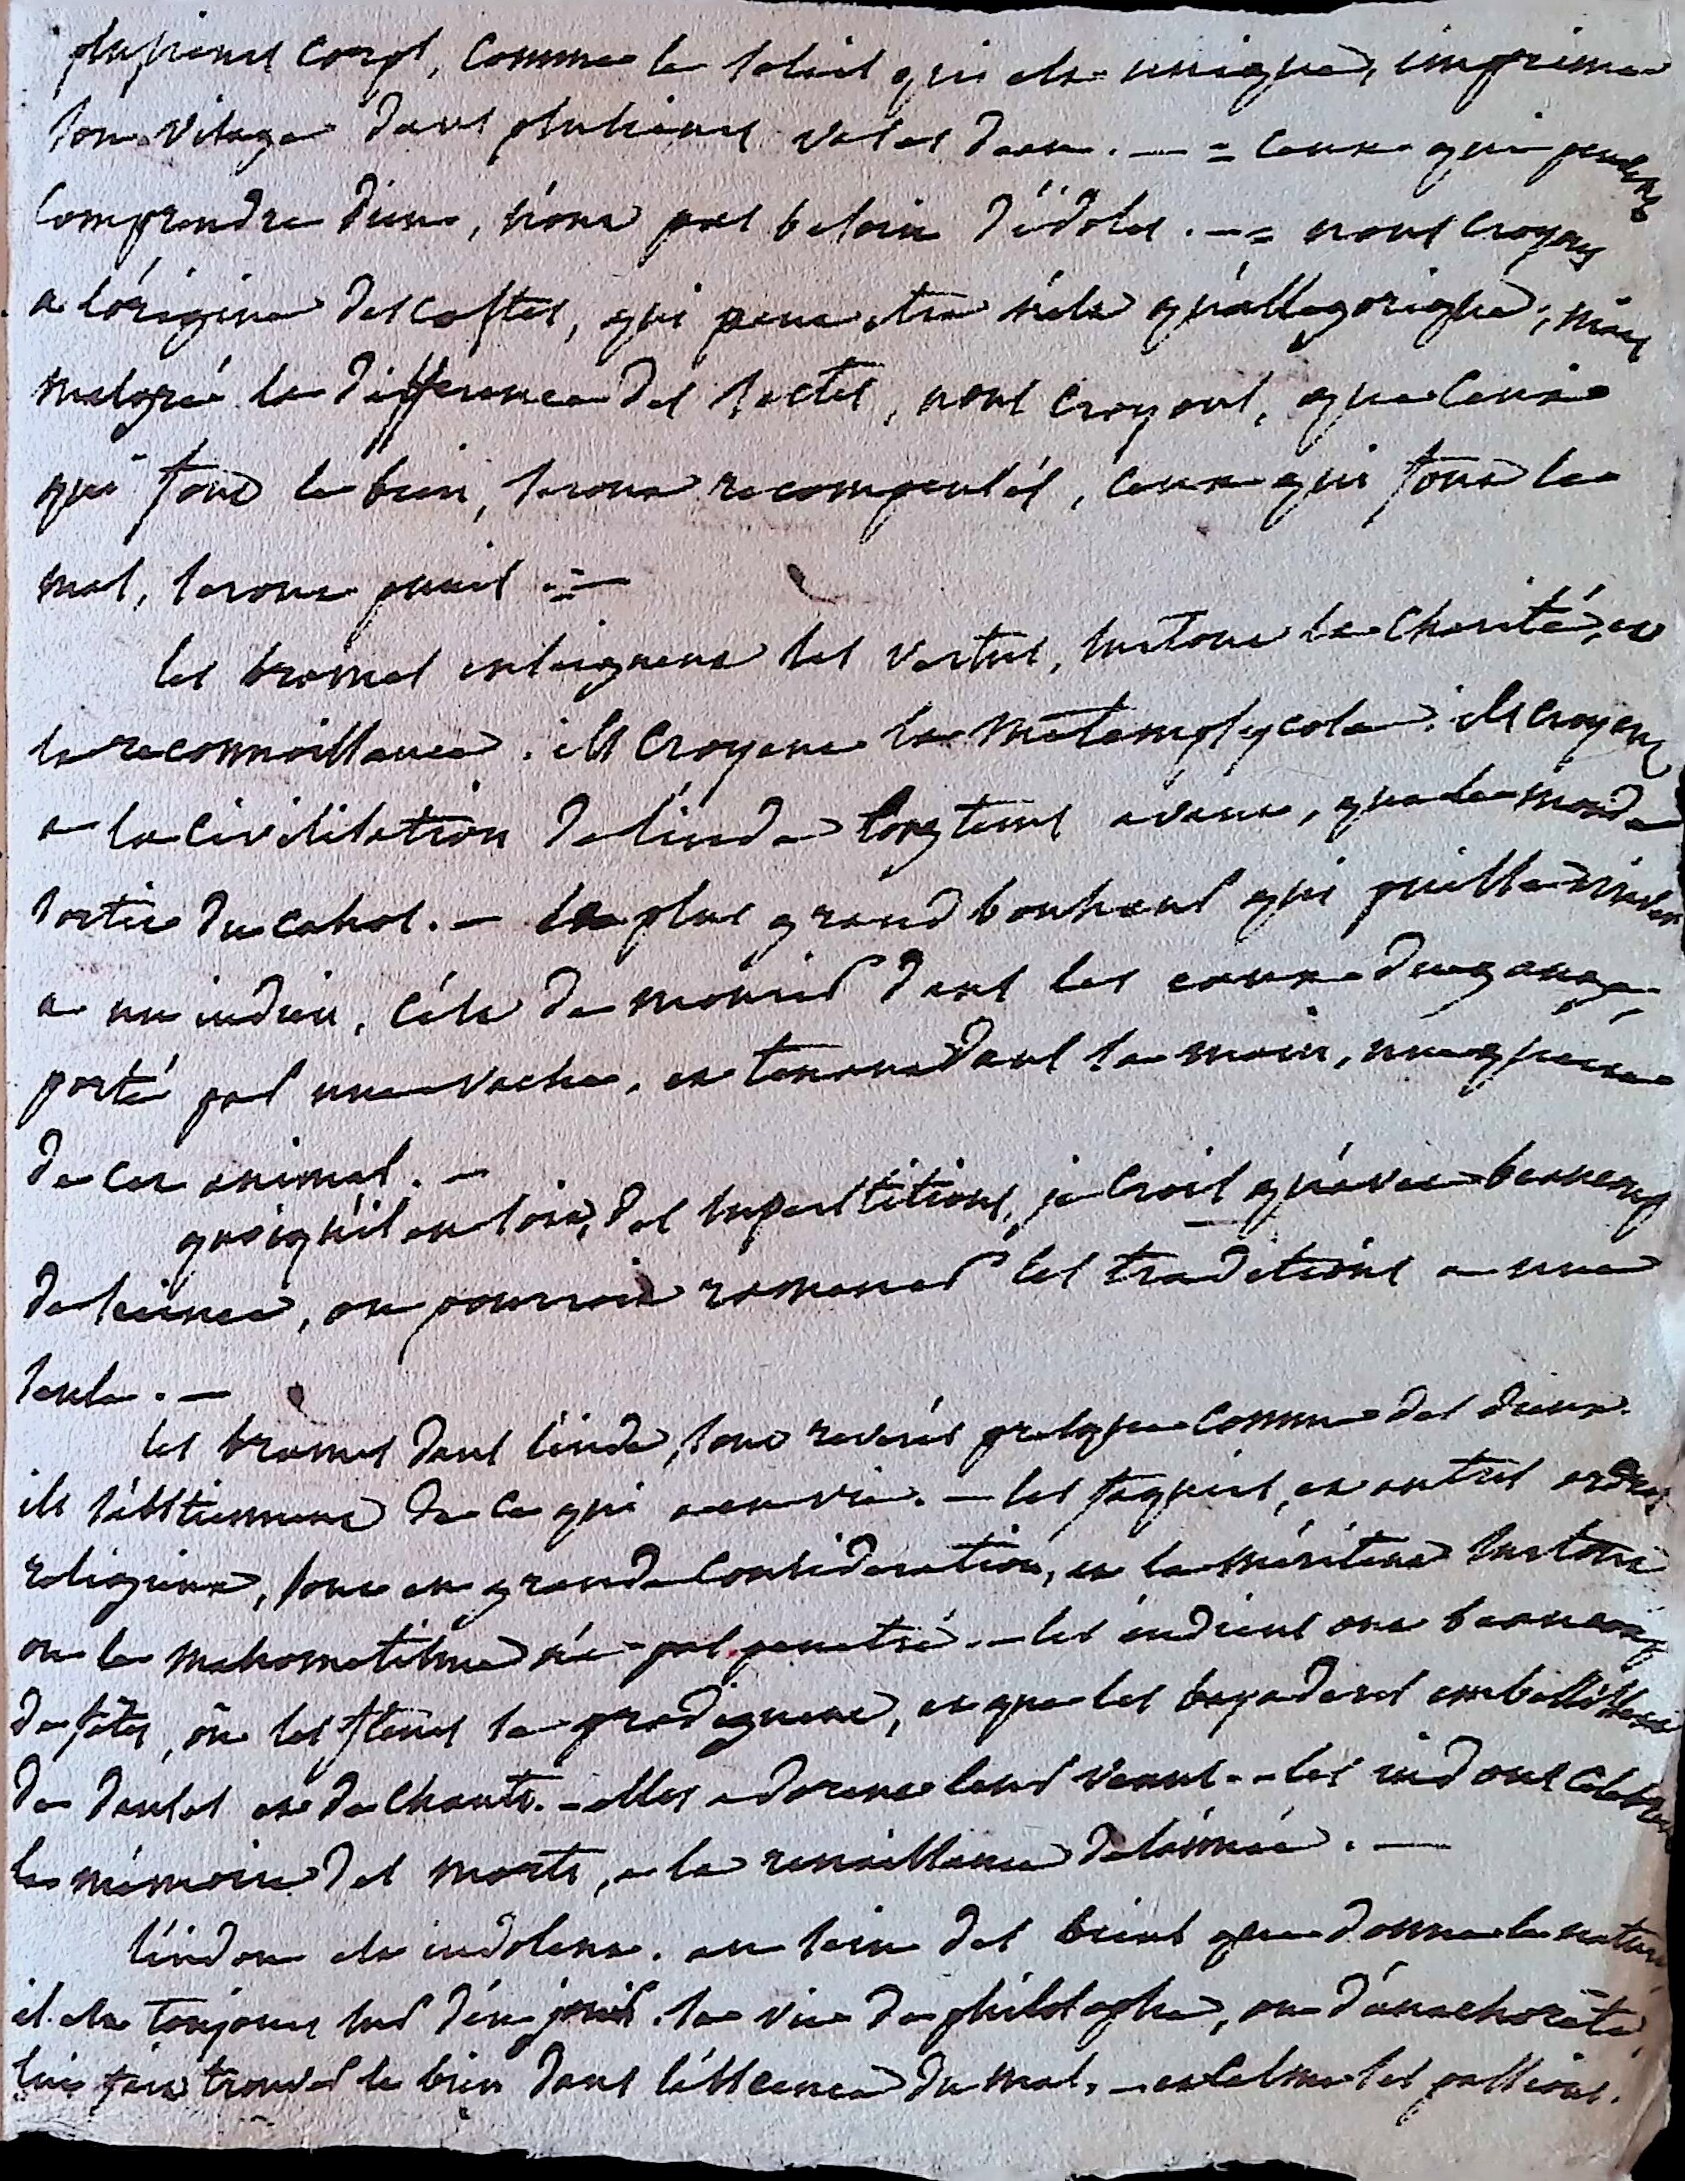 plusieurs corps, comme le soleil qui est unique, imprime
son visage dans plusieurs vases d'eau. — = ceux qui peuvent
comprendre dieu, n'ont pas besoin d'idoles. — = nous croyons
a l'origine des castes, qui peut etre n'est qu'allegorique; mais
malgré la difference des sectes, nous croyons, que ceux
qui font le bien, seront recompensés, ceux qui font le
mal, seront punis. =—
les brames enseignent les vertus, surtout la charité, et
la reconnoissance. ils croyent la métempsycose. ils croyent
a la civilisation de l'inde longtems avant, que le monde
sortit du cahos. — le plus grand bonheur qui puisse arriver
a un indien, c'est de mourir dans les eaux du gange,
porté par une vache, et tenant dans sa main, une queue
de cet animal. —
quoiqu'il en soit, des superstitions, je crois qu'avec beaucoup
de science, on pourroit ramener les traditions a une
seule. —
les brames dans l'inde, sont reverés presque comme des dieux.
ils s'abstiennent de ce qui a eu vie. — les faquirs, et autres ordres
religieux, sont en grande consideration, et la méritent surtout
ou le mahometisme n'a pas penetré. — les indiens ont beaucoup
de fêtes, ou les fleurs se prodiguent, et que les bayaderes embellissent
de danses et de chants. — elles adorent leur venus. — les indous celebrent
la mémoire des morts, a la renaissance de l'année. —
l'indou est indolent. au sein des biens que donne la nature
il est toujours sur d'en jouir. sa vie de philosophe, ou d'anachorete,
lui fait trouver le bien dans l'absence du mal, — et calme les passions.